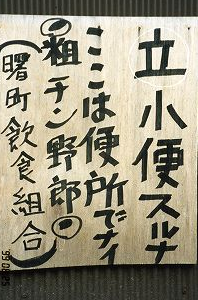 立小便スルナ
ここは便所でナイ
粗チン野郎
(曙町飲食組合)